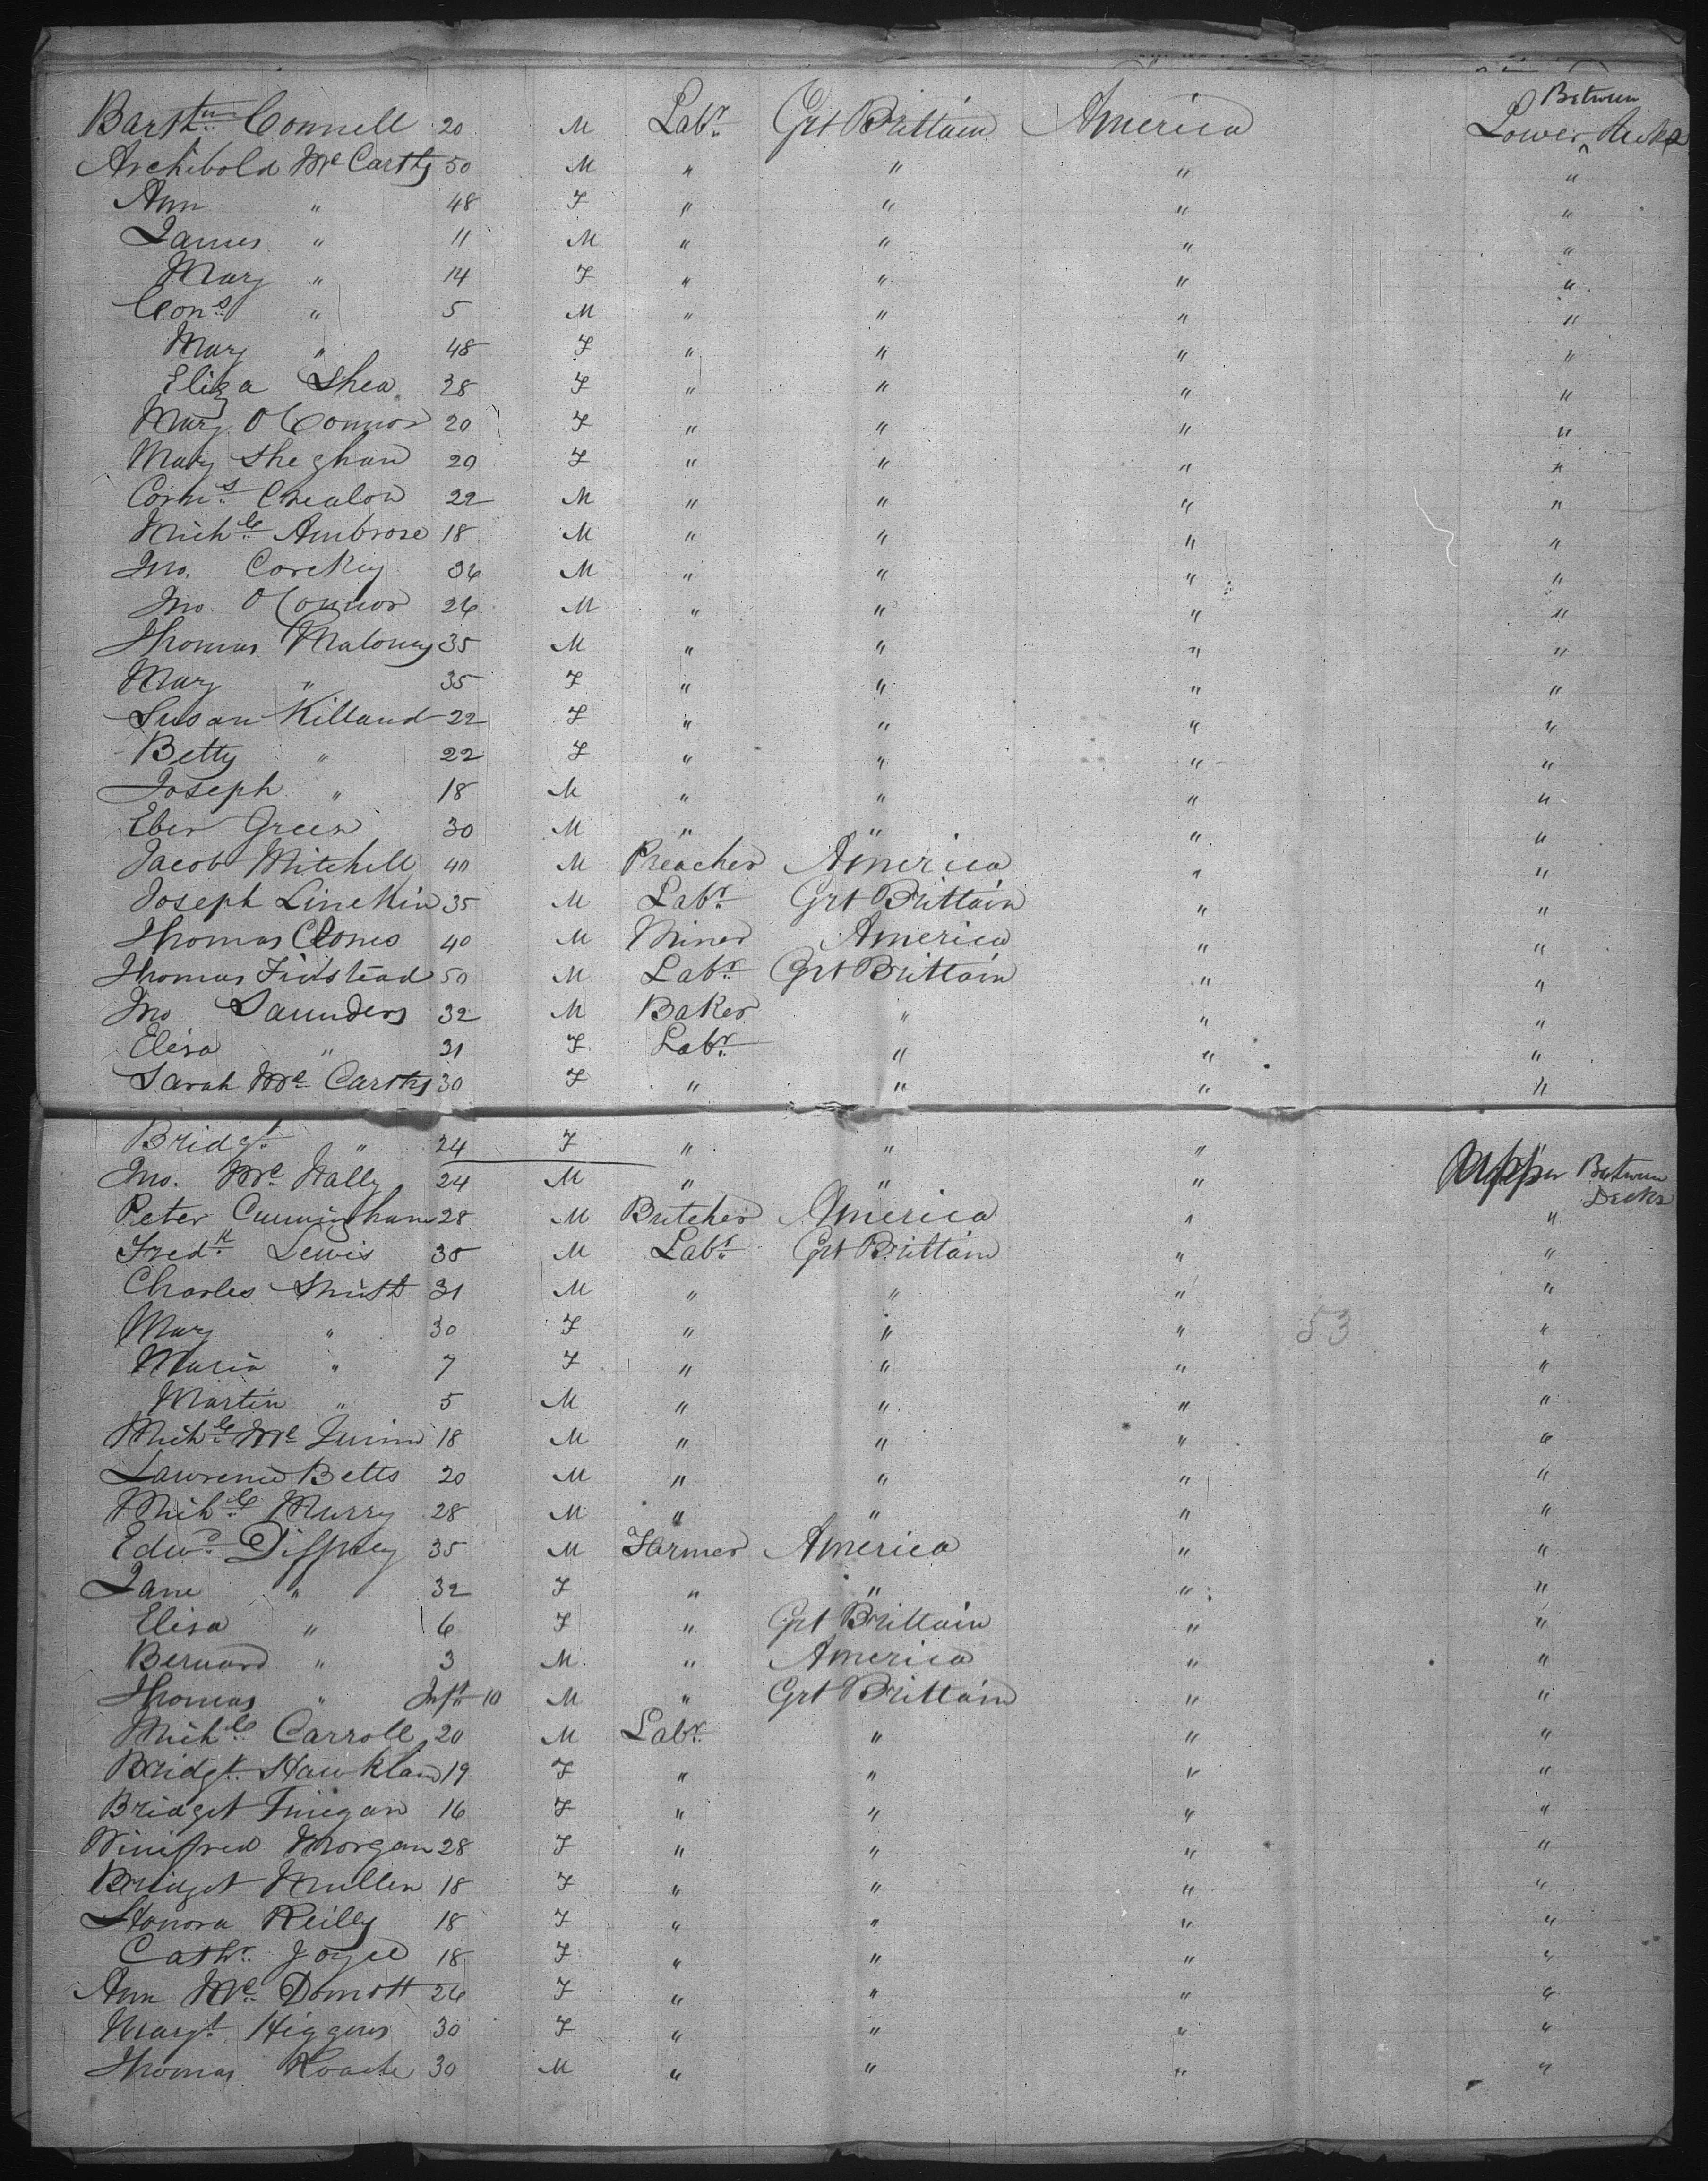 Barthw Connell 20 M Labr. Grt Brittain America Lower Between Decks
Archibold Mc Carthy 50 M " " " "
Ann " 48 F " " " "
James " 11 M " " " "
Mary " 14 F " " " "
Cons " 5 M " " " "
Mary " 48 F " " " "
Eliza Shea 28 F " " " "
Mary O Connor 20 F " " " "
Mary 20 F " " " "
Corns 22 M " " " "
Michl Ambrose 18 M " " " "
Jno. 36 M " " " "
Jno O Connor 26 M " " " "
Thomas Maloney 35 M " " " "
Mary " 35 F " " " "
Susan Killand 22 F " " " "
Betty " 22 F " " " "
Joseph " 18 M " " " "
Eber Green 30 M " " " "
Jacob Mitchell 40 M Preacher America " "
Joseph Linekin 35 M Labr. Grt Brittain " "
Thomas 40 M Miner America " "
Thomas 50 M Labr. Grt Brittain " "
Jno Saunders 32 M Baker " " "
Elisa " 31 F Labr. " " "
Sarah Mc Carthy 30 F " " " "
Bridgt " 24 F " " " "
Jno. Mc Nally 24 M " " " Upper Between Decks
Peter Cunningham 28 M Butcher America " "
Fredk Lewis 30 M Labr. Grt Brittain " "
Charles Smith 31 M " " " "
Mary " 30 F " " " "
53
Maria " 7 F " " " "
Martin " 5 M " " " "
Michl Mc Quinn 18 M " " " "
Lawrence Betts 20 M " " " "
Michl Murry 28 M " " " "
Edwd 35 M Farmer America " "
Jane " 32 F " " " "
Elisa " 6 F " Grt Brittain " "
Bernard " 3 M " America " "
Thomas " Inft 10 M " Grt Brittain " "
Michl Carroll 20 M Labr. " " "
Bridgt. 19 F " " " "
Bridget Finegan 16 F " " " "
Winifred Morgan 28 F " " " "
Bridget Mullen 18 F " " " "
Honora Reilly 18 F " " " "
Cathr. Joyce 18 F " " " "
Ann Mc Dmott 26 F " " " "
Margt. Higgins 30 F " " " "
Thomas Roach 30 M " " " "